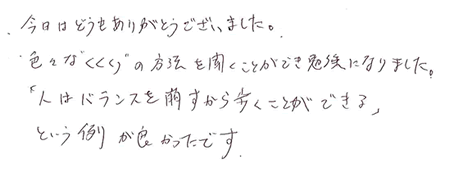 ・今日はどうもありがとうございました。
・色々な"くくり"の方法を聞くことができ勉強になりました。
「人はバランスを崩すから歩くことができる」
という例が良かったです